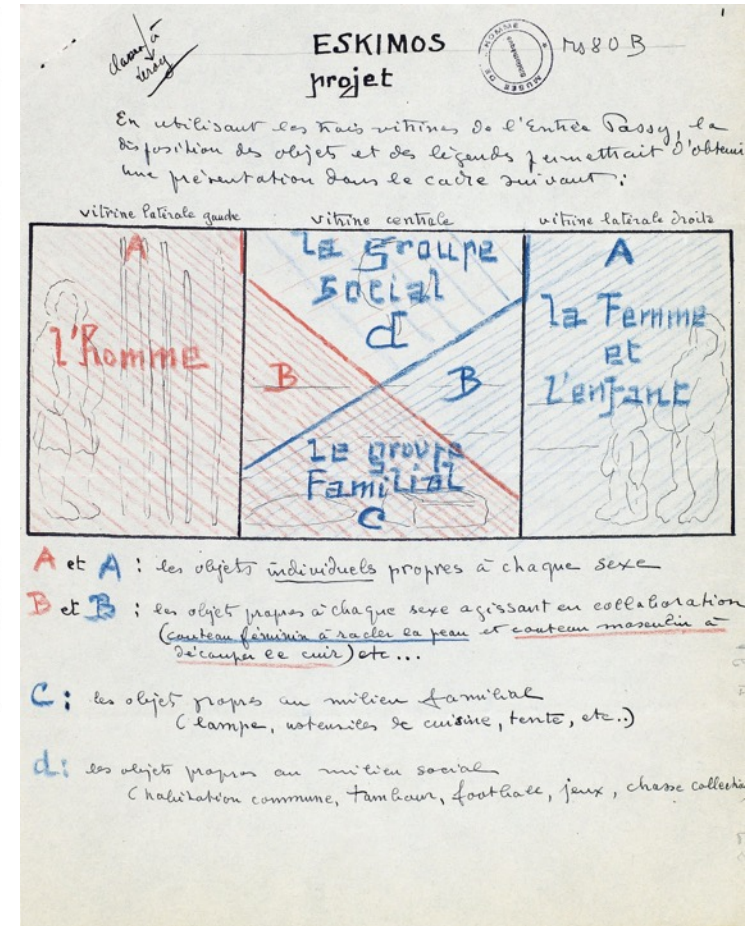 1
ESKIMOS
projet
MUSÉE DE L'HOMME
Bibliothèque
Ms 80 B
En utilisant les trois vitrines de l'Entrée Passy, la
disposition des objets et des légendes permettrait d'obtenir
une présentation dans le cadre suivant :
vitrine latérale gauche
vitrine centrale
vitrine latérale droite
A
l'Homme
Le groupe
social
d
B
B
Le groupe
Familial
C
A
la Femme
et
l'enfant
A et A : les objets individuels propres à chaque sexe
B et B : les objets propres à chaque sexe agissant en collaboration
(couteau féminin à racler la peau et couteau masculin à
découper le cuir) etc...
C : les objets propres au milieu familial
(lampe, ustensiles de cuisine, tente, etc..)
d : les objets propres au milieu social
(habitation commune, tambour, football, jeux, chasse collective